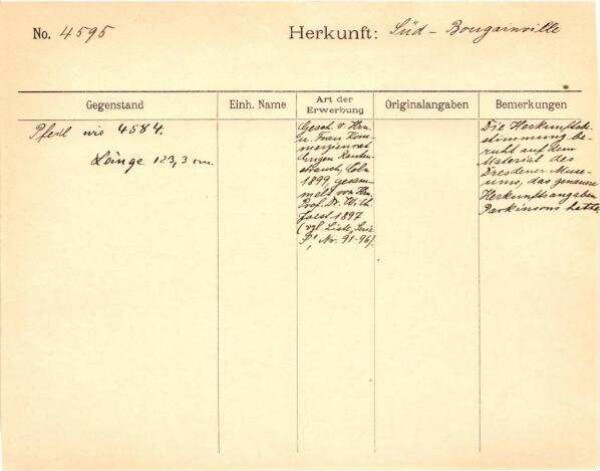 No. 4595
Herkunft: Süd - Bougainville
Gegenstand
Einh. Name
Art der Erwerbung
Originalangaben
Bemerkungen
Pfeil wie 4584.
Länge 123,3 cm.
Gesch. v. Hrn.
u. Frau Kom-
merzienrat
Eugen Rauten-
strauch, Cöln
1899, gesam-
melt von Hrn.
Prof. Dr. Wilh.
Joest 1897
(vgl. Liste, Serie
Nr. 91-96).
Die Herkunftsbe-
stimmung be-
ruht auf dem
Material des
Dresdener Muse-
ums, das genauere
Herkunftsangaben
Parkinsons hatte